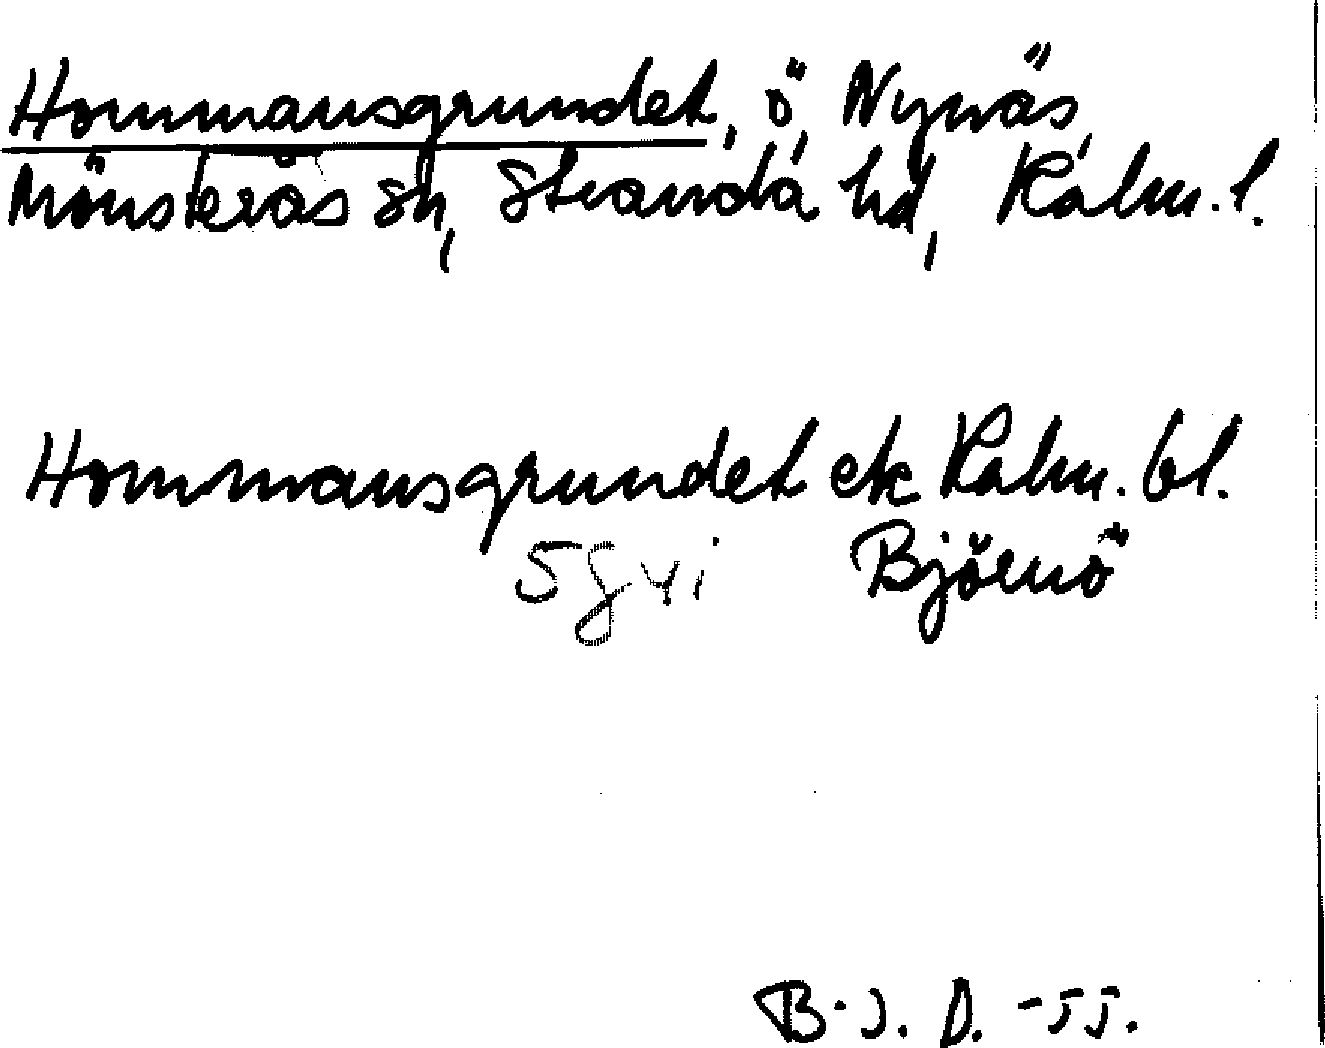 Hommansgrundet, ö, Nynäs,
Mönsterås sn, Stranda hd, Kalm. l.
Hommansgrundet ek Kalm. bl.
5g vi Björnö
B.J. D. -55.